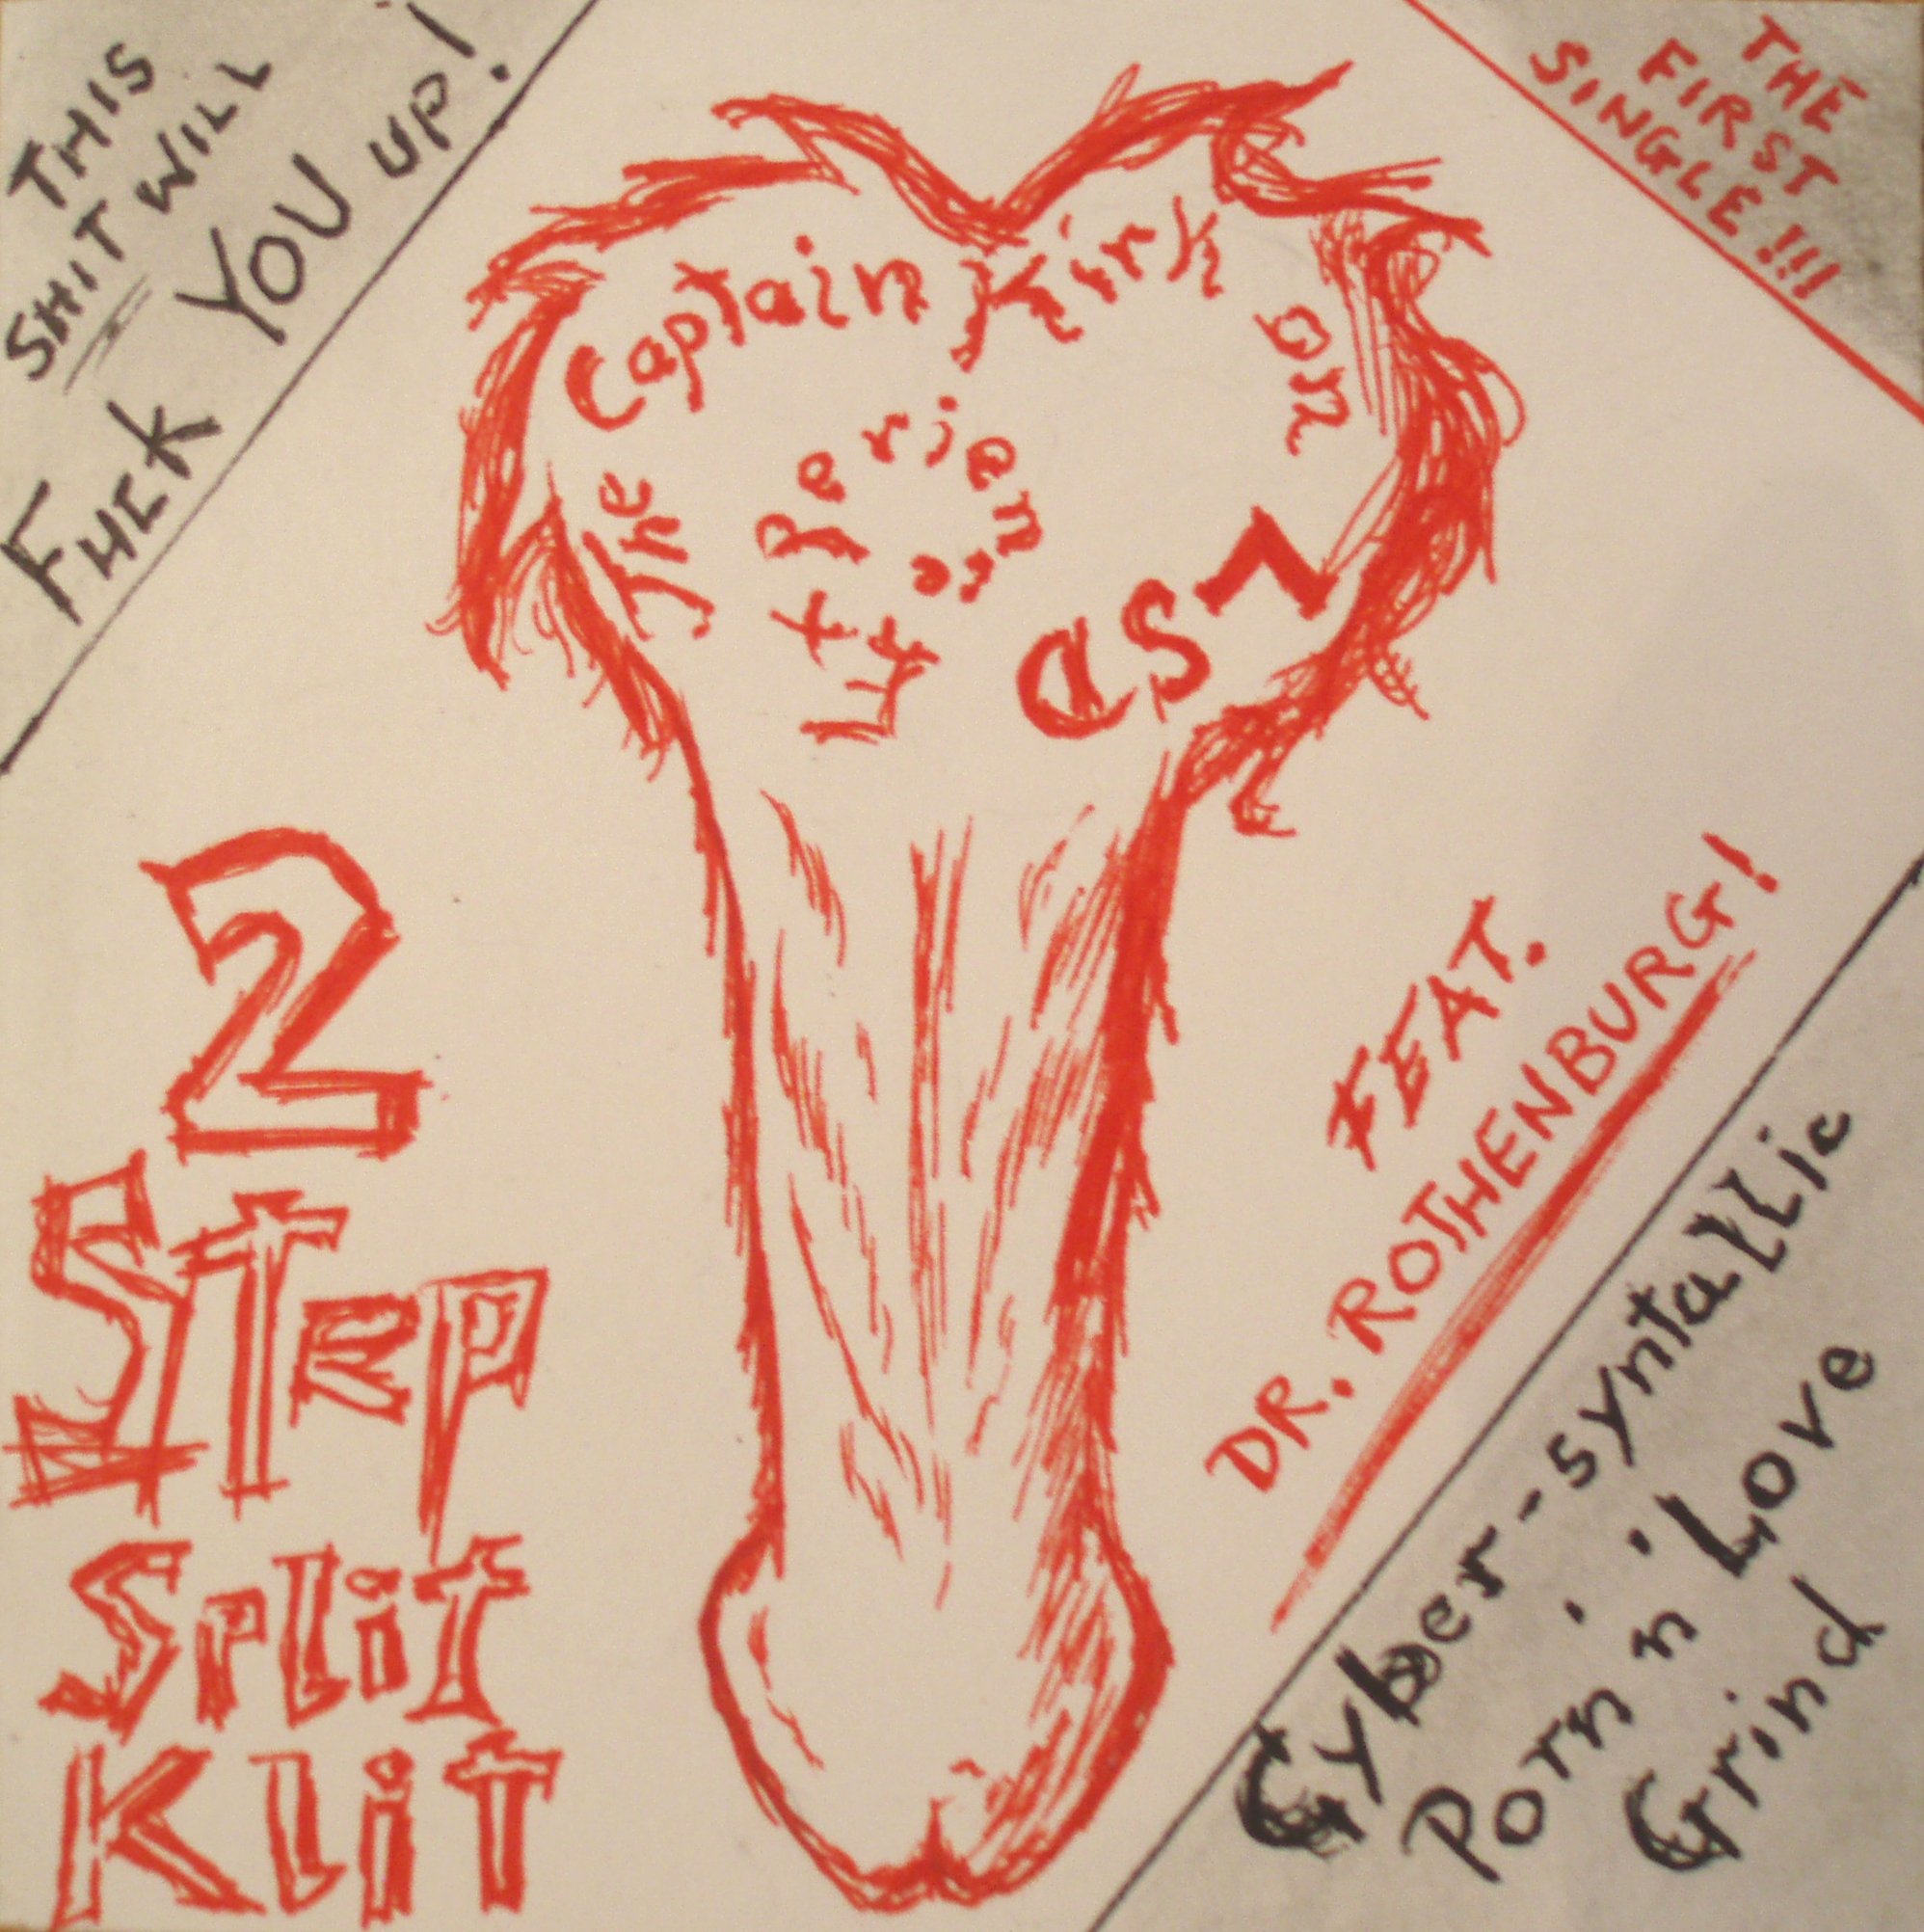 THIS
SHIT WILL
FUCK YOU UP!
THE
FIRST
SINGLE!!!
The Captain Kirk on
LSD
Experience
2
Step
Split
Klit
FEAT.
DR. ROTHENBURG!
Cyber-syntallic
Porn 'n' Love
Grind